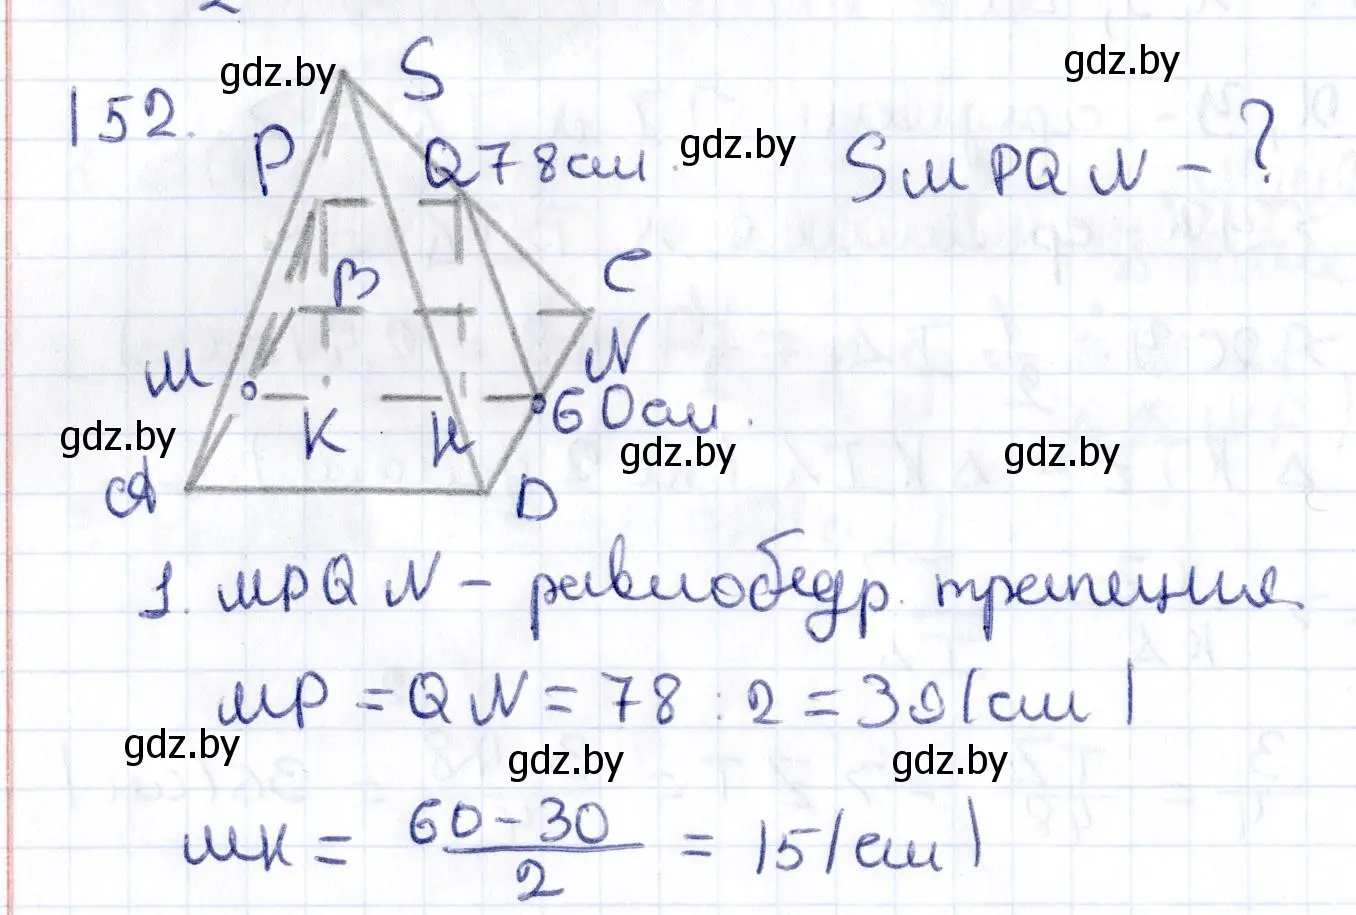 gdz.by
gdz.by
152.
S
P
Q 78 см.
gdz.by
SMPQN - ?
B
C
M
N
K
H
60 см.
gdz.by
gdz.by
gdz.by
A
D
1. MPQN - равнобедр. трапеция
MP = QN = 78 : 2 = 39 (см)
gdz.by
gdz.by
gdz.by
MK = \frac{60-30}{2} = 15 (см)